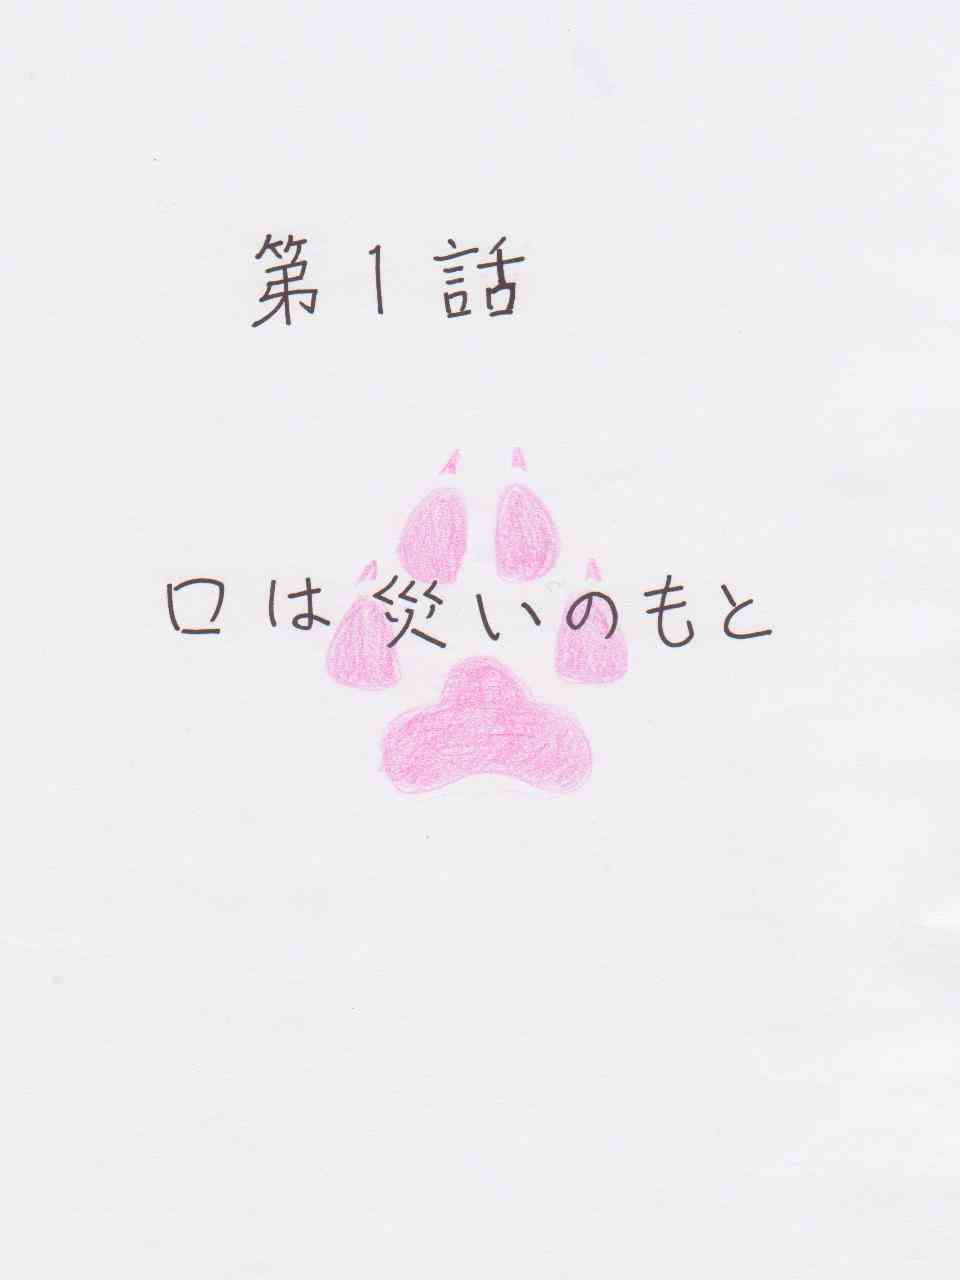 第1話
口は災いのもと